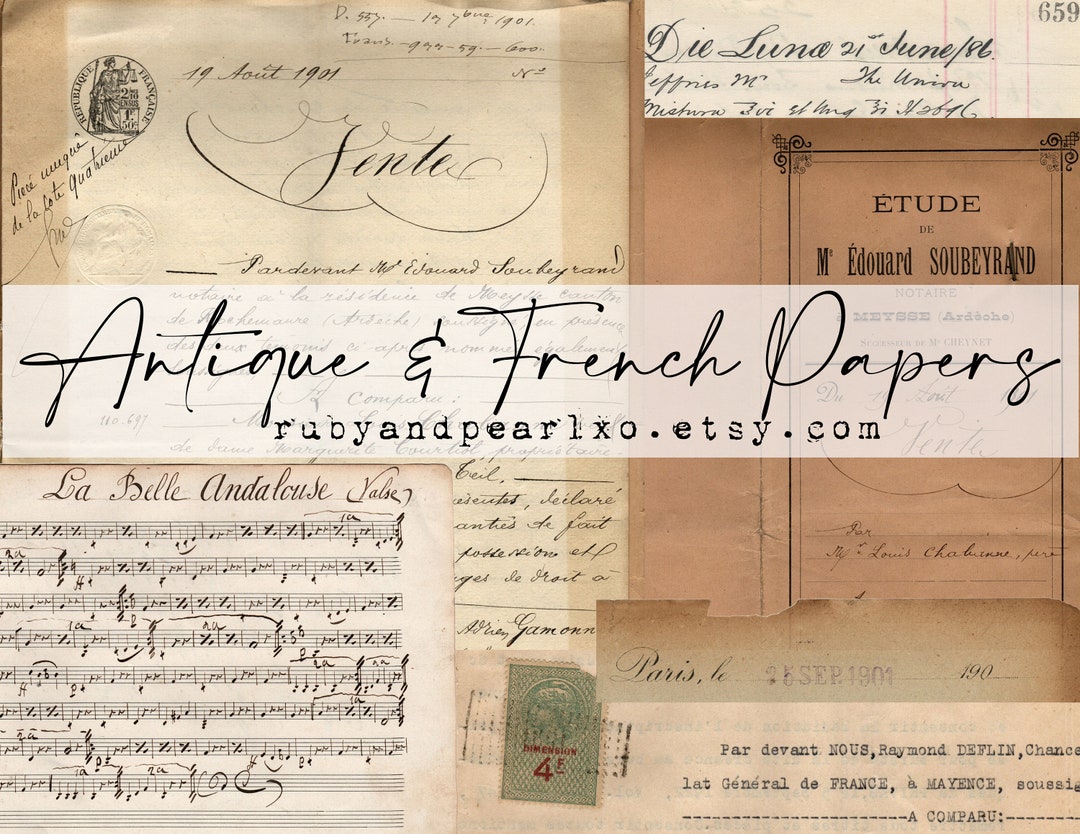 D. 557. — 19 7bre 1901.
Trans. — 977-59. — 600.
RÉPUBLIQUE FRANÇAISE
19 Août 1901
No
Vente
Piece unique
de la cote quatrieme
Pardevant Me Edouard Soubeyrand
notaire à la résidence de Meysse canton
de Rochemaure (Ardèche) soussigné, en présence
des deux témoins ci après nommés également
Comparu :
110.697
de dame Marguerite Courtiol, propriétaire
Teil,
présentes, déclaré
garanties de fait
possession et
de droit à
Adrien Gamonn
659
Die Lunæ 21st June/86.
Jeffries Mr The Union
Mistura
ÉTUDE
DE
Me Édouard SOUBEYRAND
NOTAIRE
à MEYSSE (Ardèche)
SUCCESSEUR DE Me CHEYNET
Du 19 Août
Vente
Par
Mr Louis Chabanne, père
Antique & French Papers
rubyandpearlxo.etsy.com
La Belle Andalouse (Valse)
1a
2a
1a
2a
2a
2a
1a
2a
1a
2a
DIMENSION
4F
Paris, le 25 SEP. 1901 190
Par devant NOUS,Raymond DEFLIN,Chance
lat Général de FRANCE, à MAYENCE, soussig
A COMPARU: